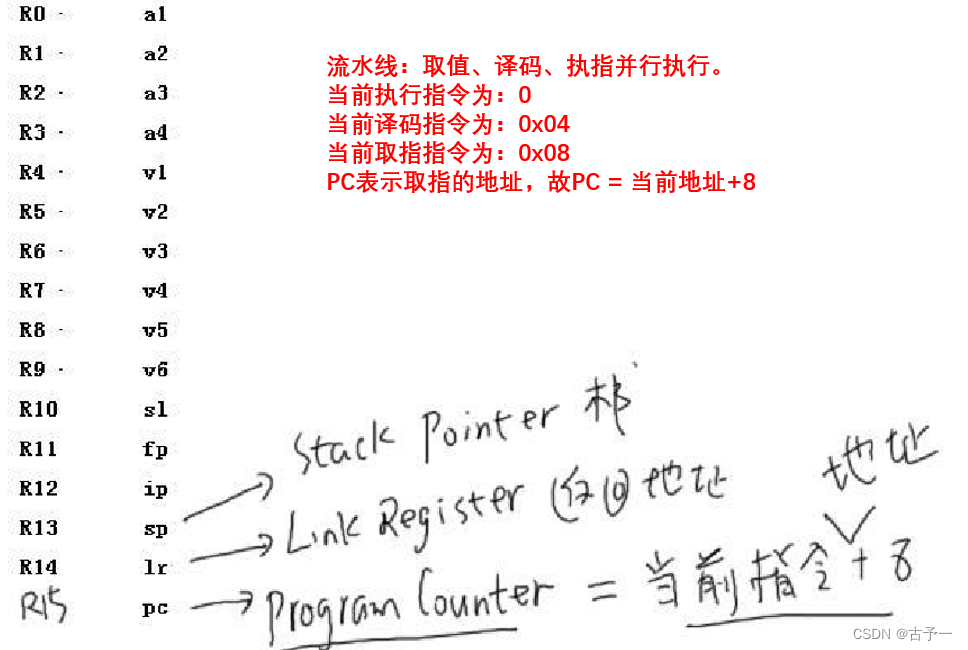 R0 - a1
R1 - a2
流水线：取值、译码、执指并行执行。
当前执行指令为：0
当前译码指令为：0x04
当前取指指令为：0x08
PC表示取指的地址，故PC = 当前地址+8
R2 - a3
R3 - a4
R4 - v1
R5 - v2
R6 - v3
R7 - v4
R8 - v5
R9 - v6
R10 sl
R11 fp
R12 ip
R13 sp
Stack Pointer 栈
R14 lr
Link Register (返回地址
R15 pc
Program Counter = 当前指令+8
地址
CSDN @古予一